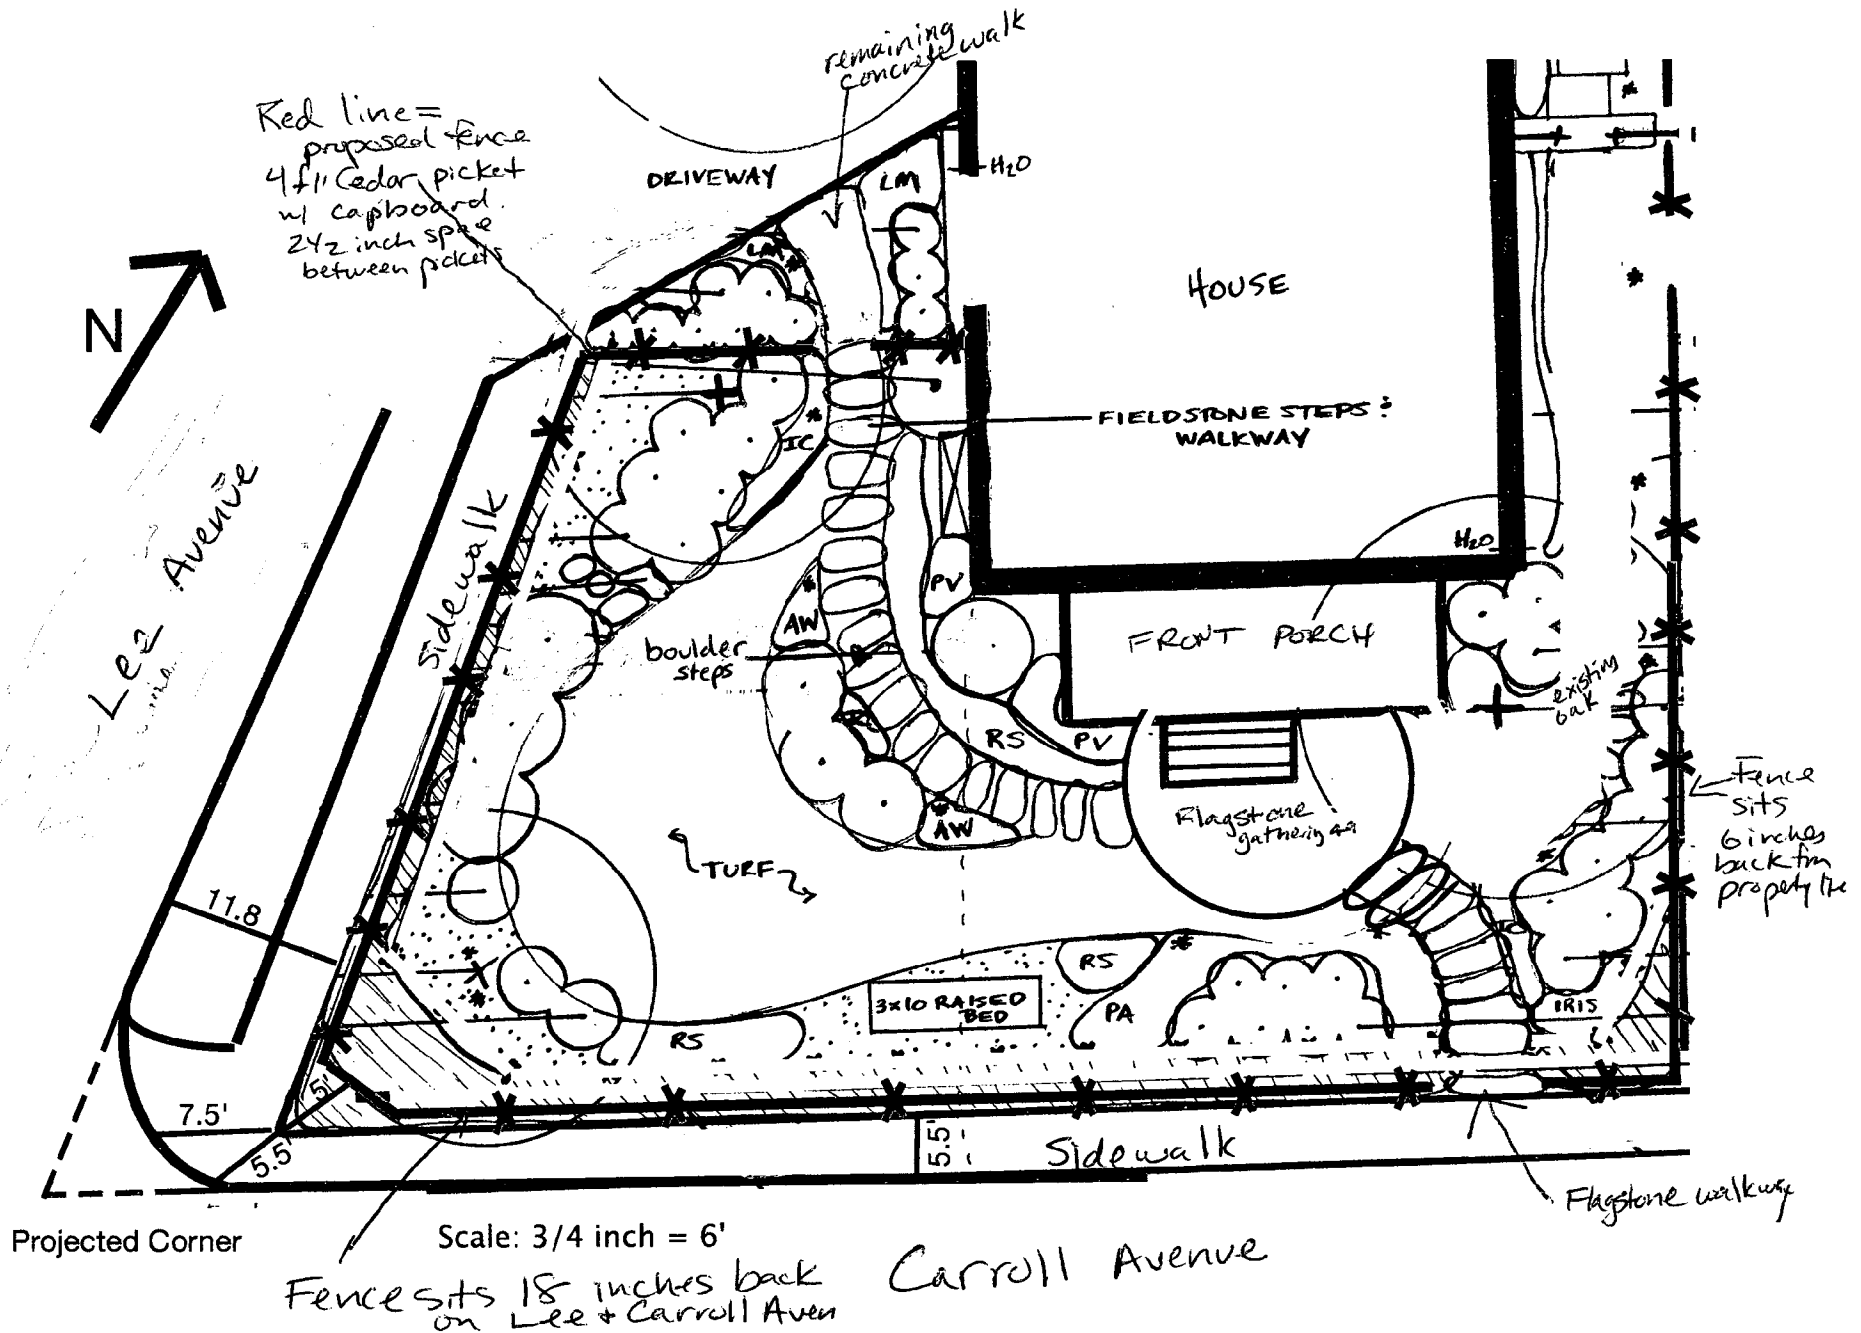 remaining
concrete walk
Red line =
proposed fence
4ft Cedar picket
w/ capboard.
2 1/2 inch space
between pickets
DRIVEWAY
LM
H2O
LM
N
HOUSE
FIELDSTONE STEPS &
WALKWAY
IC
Lee Avenue
Sidewalk
H2O
PV
AW
boulder
steps
FRONT PORCH
existing
oak
RS
PV
Fence
sits
6 inches
back frm
property line
Flagstone
gathering
AW
TURF
11.8
RS
3x10 RAISED
BED
PA
IRIS
RS
5'
7.5'
5.5'
5.5'
Sidewalk
Flagstone walkway
Projected Corner
Scale: 3/4 inch = 6'
Carroll Avenue
Fence sits 18 inches back
on Lee + Carroll Aven